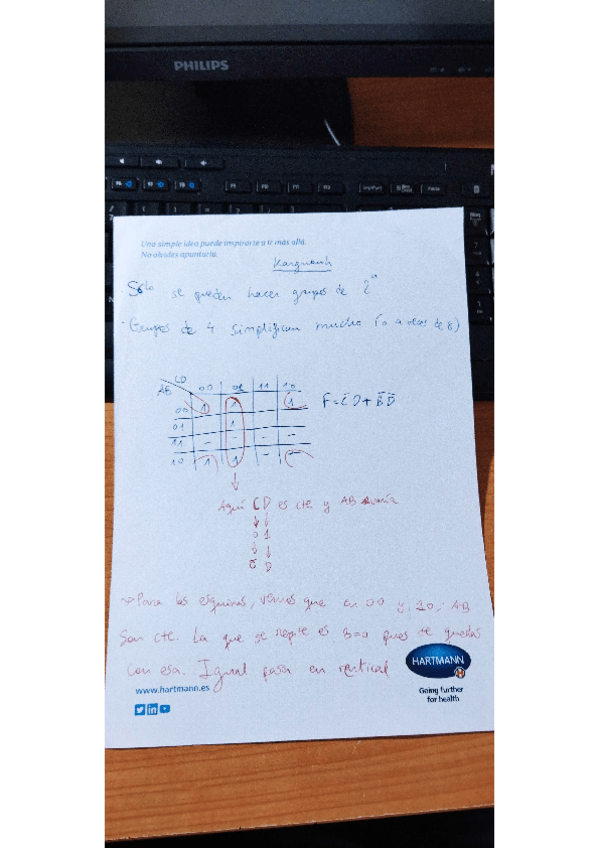 PHILIPS
F1 F2 F3 F4
Una simple idea puede inspirarte a ir más allá.
No olvides apuntarla.
Karnaugh
Solo se pueden hacer grupos de 2ⁿ
· Grupos de 4 simplifican mucho (o a veces de 8)
CD
AB 00 01 11 10
00 1 1 1
01 1
11 - - - -
10 1 1 - -
F = C̄D + B̄D̄
Aquí CD es cte. y AB varía
0 1
C̄ D
→ Para las esquinas, vemos que en 00 y 10, AB
son cte. La que se repite es B=0 pues te quedas
con esa. Igual pasa en vertical
HARTMANN
www.hartmann.es
Going further
for health